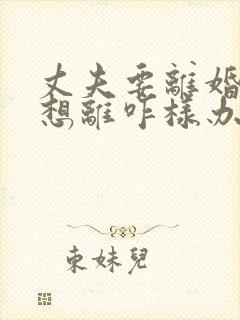 丈夫要離婚
想離咋樣办
東妹兒